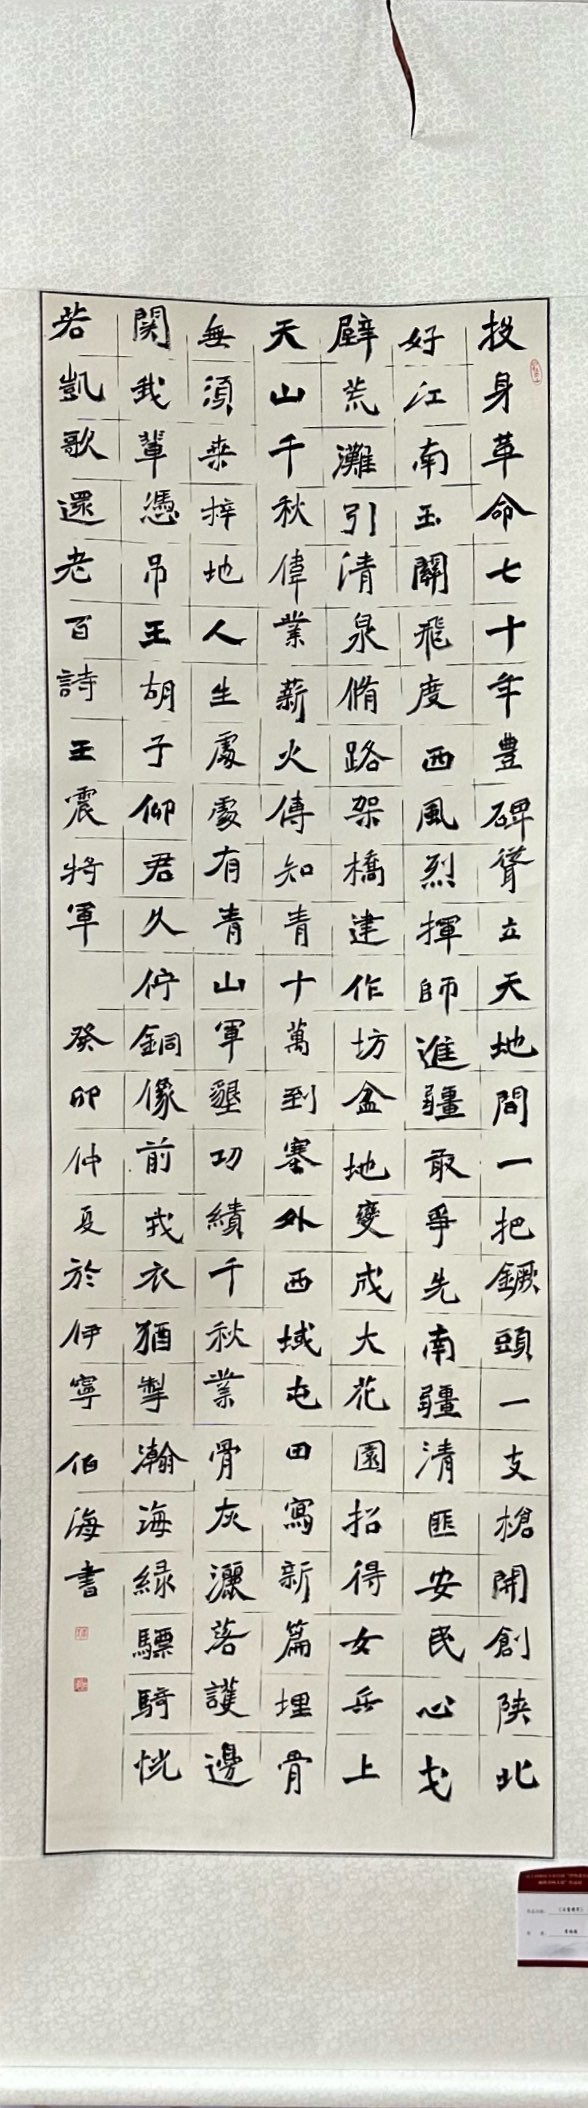 投身革命七十年豊碑聳立天地間一把钁頭一支槍開創陝北
好江南玉關飛度西風烈揮師進疆敢爭先南疆清匪安民心戈
壁荒灘引清泉脩路架橋建作坊盆地變成大花園招得女兵上
天山千秋偉業薪火傳知青十萬到塞外西域屯田寫新篇埋骨
無須桑梓地人生處處有青山軍墾功績千秋業骨灰灑落護邊
関我輩憑吊王胡子仰君久佇銅像前戎衣猶掣瀚海緑驃騎恍
若凱歌還老百詩王震將軍 癸卯仲夏於伊寧 伯海書